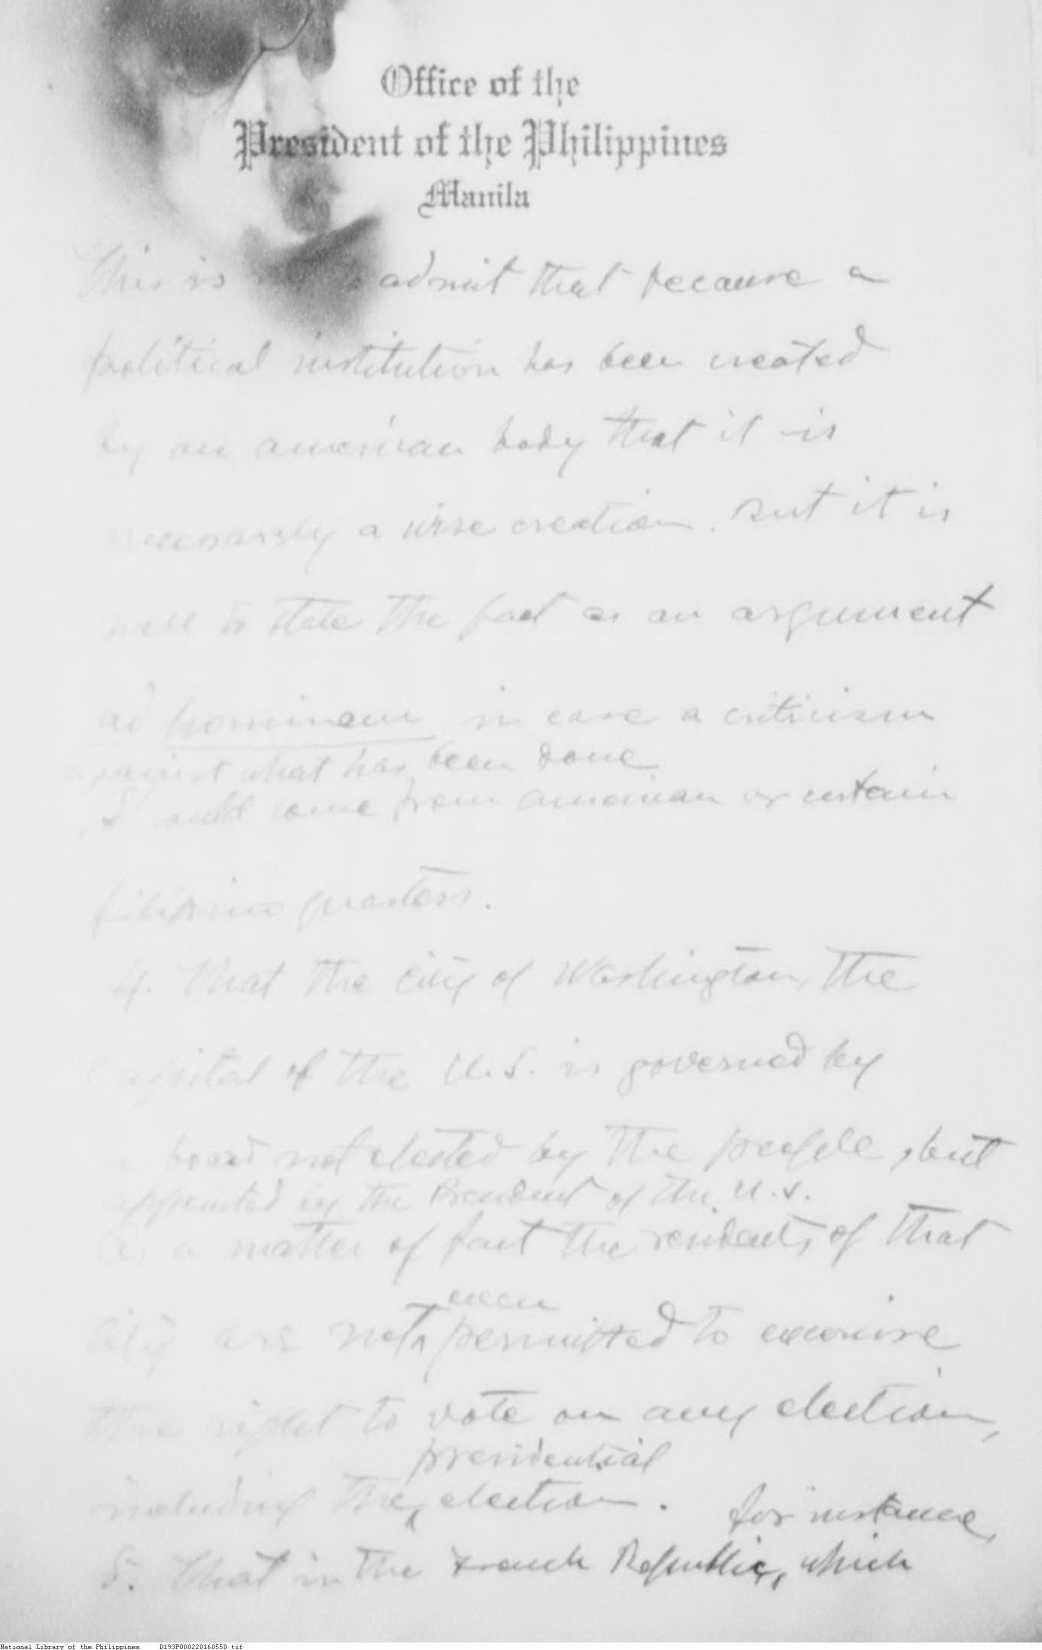 Office of the
President of the Philippines
Manila
This is admit that because a
political institution has been created
by an american body that it is
necessarily a wise creation. But it is
well to state the fact as an argument
ad hominem in case a criticism
against what has been done
should come from american or certain
filipino quarters.
4. That the city of Washington, the
capital of the U.S. is governed by
a board not elected by the people, but
appointed by the President of the U.S.
As a matter of fact the residents of that
even
city are not permitted to exercise
the right to vote on any election,
presidential
including the election. for instance,
5. That in the French Republic, which
National Library of the Philippines D193P000220160550.tif